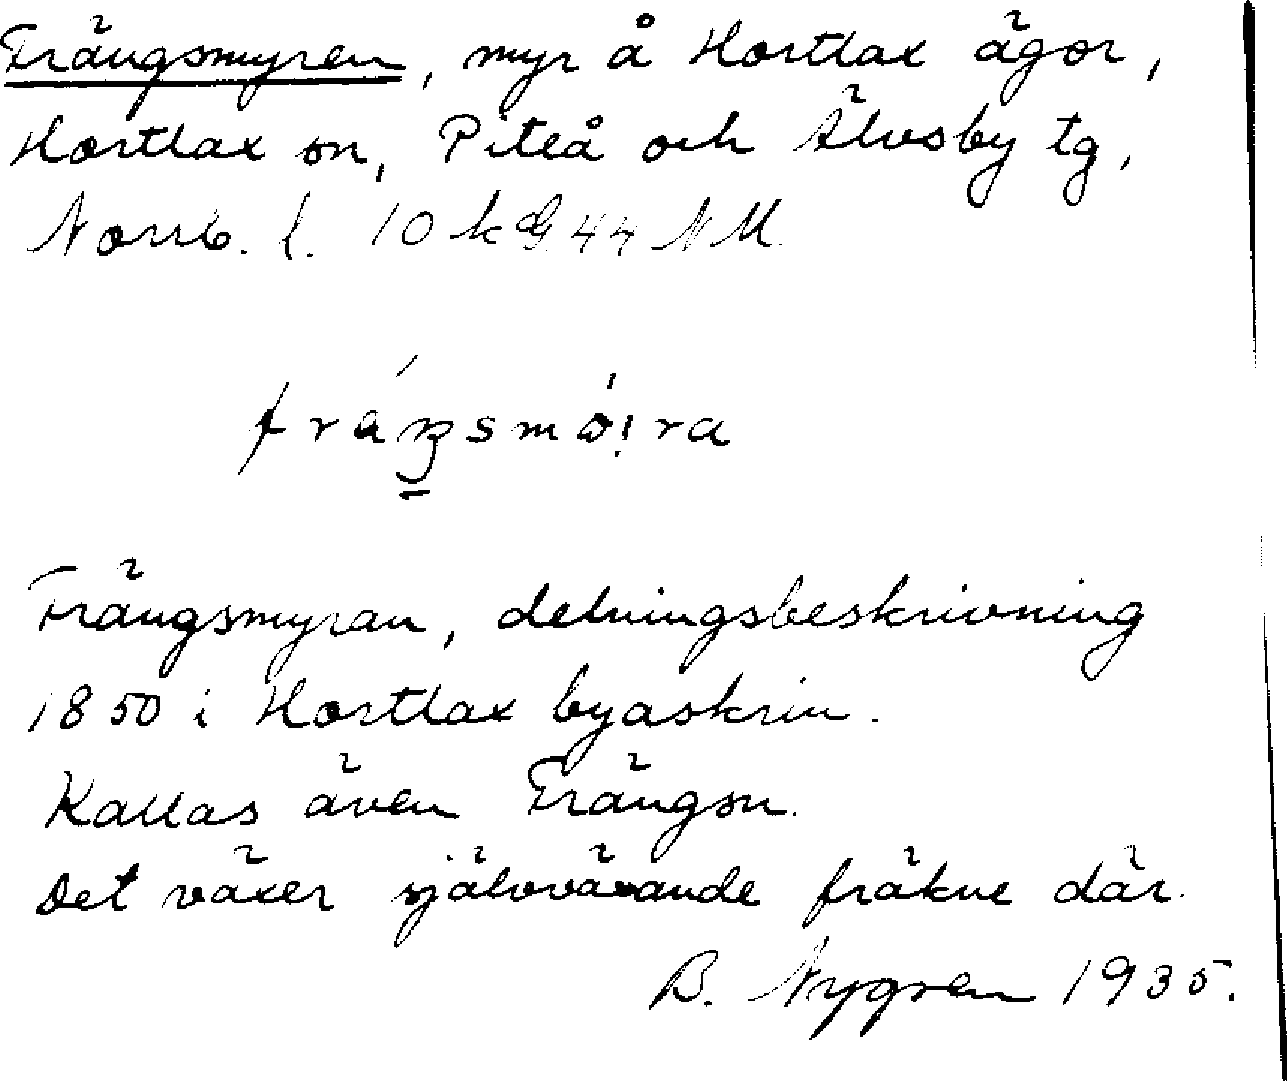 Frängsmyren, myr å Hortlax ägor,
Hortlax sn, Piteå och Älvsby tg,
Norrb. l. 10 k
Frängsmyran, delningsbeskrivning
1850 i Hortlax byaskrin.
Kallas även Frängsn.
Det växer självväxande fräkne där.
B. Nygren 1935.